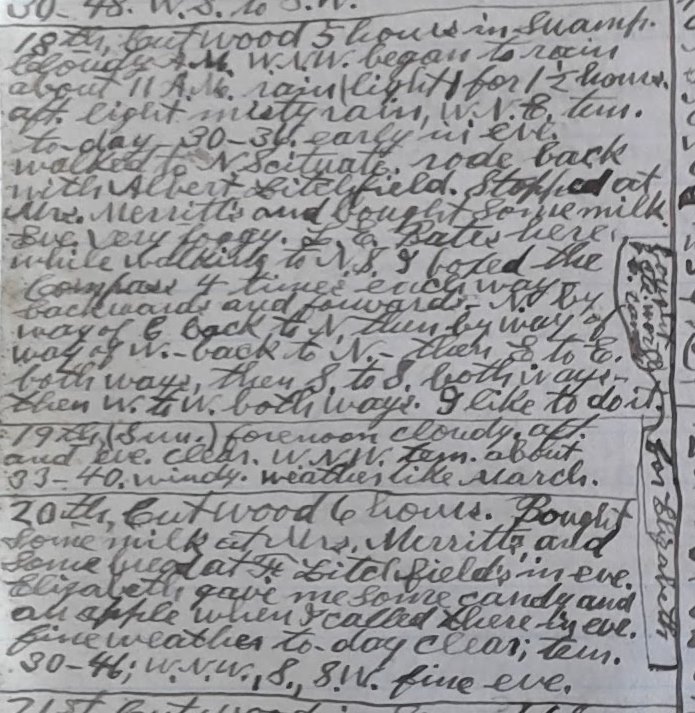 30-48. W.S. to S.W.
18th, Cut wood 5 hours in swamp.
Cloudy A.M. W.N.W. began to rain
about 11 A.M. rain (light) for 1½ hours.
aft. light misty rain, W.N.E. tem.
to-day 30-36. early in eve.
walked to N Scituate. rode back
with Albert Litchfield. Stopped at
Mrs. Merritt's and bought some milk.
Eve. very foggy. L. E. Bates here.
while walking to N.S. I boxed the
Compass 4 times each way
backwards and forwards - N. by
way of E back to N, then by way of
way of W. - back to N. - then E to E.
both ways, then S. to S. both ways -
then W. to W. both ways. I like to do it
19th, (Sun.) forenoon cloudy. aft.
and eve. clear. W.N.W. tem. about
33-40. windy. weather like March.
20th, Cut wood 6 hours. Bought
some milk at Mrs. Merritt's and
some at F. Litchfield's in eve.
Elizabeth gave me some candy and
an apple when I called there by eve.
fine weather to-day clear; tem.
30-46; W.N.W., S., S.W. fine eve.
21st Cut wood
for Elizabeth